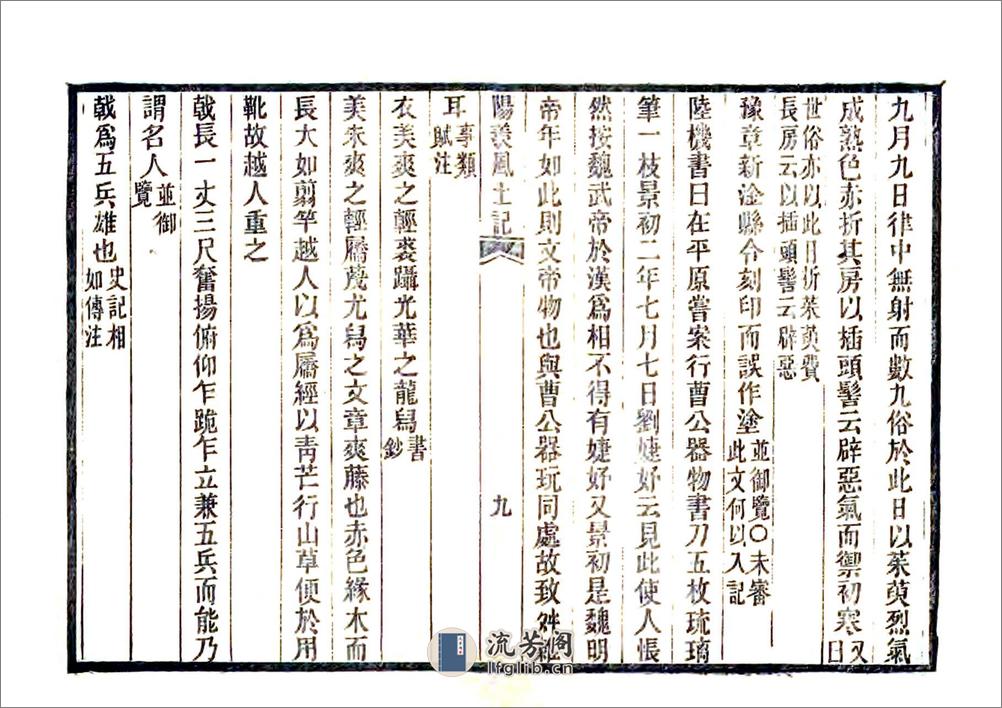 九月九日律中無射而數九俗於此日以茱萸烈氣
成熟色赤折其房以插頭髻云辟惡氣而禦初寒又日
世俗亦以此日折茱萸費
長房云以插頭髻云辟惡
豫章新淦縣令刻印而誤作塗並御覽〇未審此文何以入記
陸機書曰在平原嘗案行曹公器物書刀五枚琉璃
筆一枝景初二年七月七日劉婕妤云見此使人悵
然按魏武帝於漢爲相不得有婕妤又景初是魏明
帝年如此則文帝物也與曹公器玩同處故致舛雜
陽羨風土記 九
耳事類賦注
衣美爽之輕裘躡光華之龍舄書鈔
美朱爽之輕屩茂尤舄之文章爽藤也赤色緣木而
長大如翦竿越人以爲屩經以靑芒行山草便於用
靴故越人重之
戟長一丈三尺奮揚俯仰乍跪乍立兼五兵而能乃
謂名人並御覽
戟爲五兵雄也史記相如傳注
流芳阁
lfglib.cn